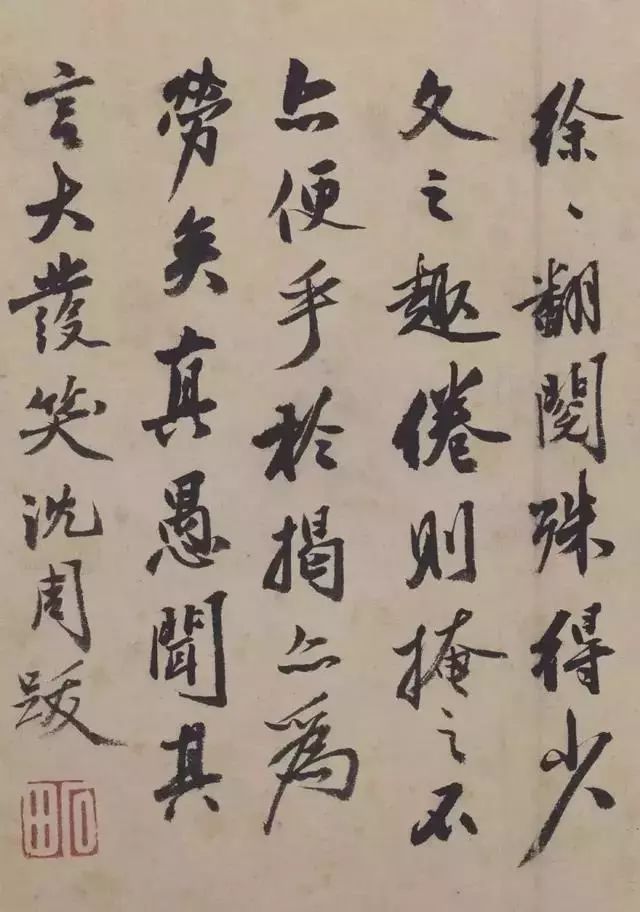 徐々翻閱殊得少
文之趣倦則掩之不
亦便乎於揭亦爲
勞矣真愚聞其
言大發笑沈周跋
石田